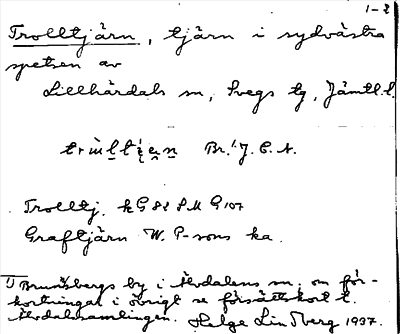 1-2
Trolltjärn, tjärn i sydvästra
spetsen av
Lillhärdals sn, Svegs tg, Jämtl. l.
Br.¹ J. E. A.
Trolltj. kG 82 SM G 107
Graftjärn W. P-sons ka.
1) Brunnsbergs by i Älvdalens sn; om för-
kortningar i övrigt se försättskort t.
Älvdalssamlingen. Helge Lindberg 1937.